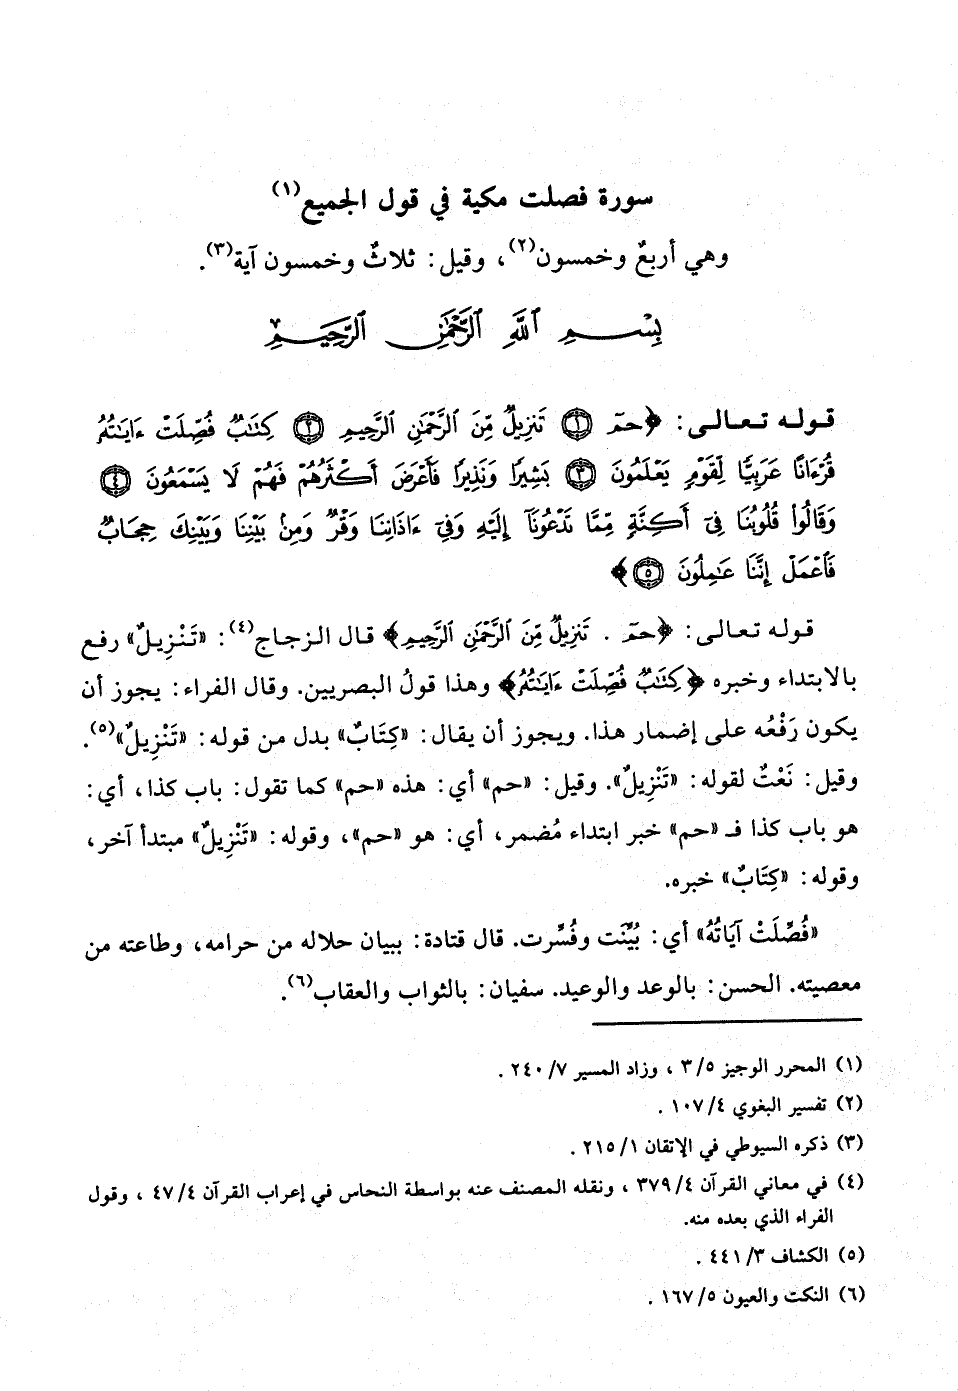 سورة فصلت مكية في قول الجميع(١)
وهي أربعٌ وخمسون(٢)، وقيل: ثلاثٌ وخمسون آية(٣).
بِسْمِ ٱللَّهِ ٱلرَّحْمَٰنِ ٱلرَّحِيمِ
قوله تعالى: ﴿حمٓ ۝١ تَنزِيلٌ مِّنَ ٱلرَّحْمَٰنِ ٱلرَّحِيمِ ۝٢ كِتَٰبٌ فُصِّلَتْ ءَايَٰتُهُۥ
قُرْءَانًا عَرَبِيًّا لِّقَوْمٍ يَعْلَمُونَ ۝٣ بَشِيرًا وَنَذِيرًا فَأَعْرَضَ أَكْثَرُهُمْ فَهُمْ لَا يَسْمَعُونَ ۝٤
وَقَالُوا۟ قُلُوبُنَا فِىٓ أَكِنَّةٍ مِّمَّا تَدْعُونَآ إِلَيْهِ وَفِىٓ ءَاذَانِنَا وَقْرٌ وَمِنۢ بَيْنِنَا وَبَيْنِكَ حِجَابٌ
فَٱعْمَلْ إِنَّنَا عَٰمِلُونَ ۝٥﴾
قوله تعالى: ﴿حمٓ . تَنزِيلٌ مِّنَ ٱلرَّحْمَٰنِ ٱلرَّحِيمِ﴾ قال الزجاج(٤): «تَنْزِيلٌ» رفع
بالابتداء وخبره ﴿كِتَٰبٌ فُصِّلَتْ ءَايَٰتُهُۥ﴾ وهذا قولُ البصريين. وقال الفراء: يجوز أن
يكون رَفْعُه على إضمار هذا. ويجوز أن يقال: «كِتَابٌ» بدل من قوله: «تَنْزِيلٌ»(٥).
وقيل: نَعْتٌ لقوله: «تَنْزِيلٌ». وقيل: «حم» أي: هذه «حم» كما تقول: باب كذا، أي:
هو باب كذا فـ «حم» خبر ابتداء مُضمر، أي: هو «حم»، وقوله: «تَنْزِيلٌ» مبتدأ آخر،
وقوله: «كِتَابٌ» خبره.
«فُصِّلَتْ آيَاتُهُ» أي: بُيِّنَت وفُسِّرت. قال قتادة: ببيان حلاله من حرامه، وطاعته من
معصيته. الحسن: بالوعد والوعيد. سفيان: بالثواب والعقاب(٦).
(١) المحرر الوجيز ٣/٥ ، وزاد المسير ٢٤٠/٧ .
(٢) تفسير البغوي ١٠٧/٤ .
(٣) ذكره السيوطي في الإتقان ٢١٥/١ .
(٤) في معاني القرآن ٣٧٩/٤ ، ونقله المصنف عنه بواسطة النحاس في إعراب القرآن ٤٧/٤ ، وقول
الفراء الذي بعده منه.
(٥) الكشاف ٤٤١/٣ .
(٦) النكت والعيون ١٦٧/٥ .